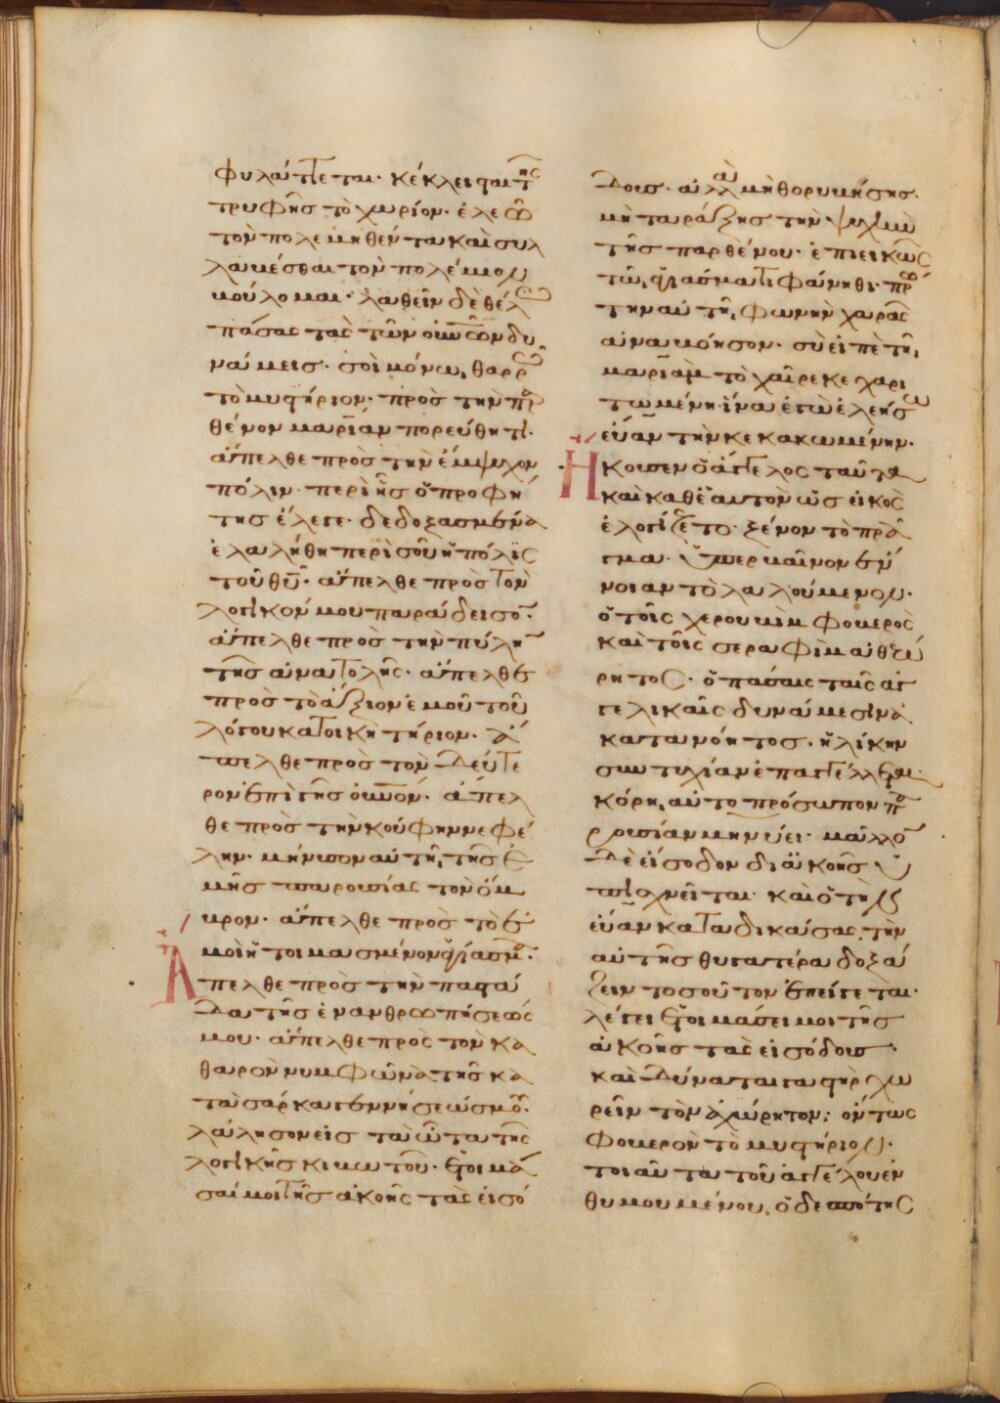 φυλάττεται· κέκλεισται τῆς
τρυφῆς τὸ χωρίον· ἐλεῶ
τὸν πολεμηθέντα καὶ συλ
λαβέσθαι τὸν πολέμιον
βούλομαι· λαθεῖν δὲ θέλω
πάσας τὰς τῶν οὐνῶν δυ
νάμεις· σοὶ μόνω, θαρρῶ
τὸ μυστήριον· πρὸς τὴν παρ
θένον μαρίὰν πορεύθητι·
ἄπελθε πρὸς τὴν ἔμψυχον
πόλιν· περὶ ἧς ὁ προφή
της ἔλεγε· δεδοξασμένα
ἐλαλήθη περὶ σοῦ ἡ πόλις
τοῦ θῦ· ἄπελθε πρὸς τὸν
λογικόν μου παράδεισον·
ἄπελθε πρὸς τὴν πύλην
τῆς ἀνατολῆς· ἄπελθε
πρὸς τὸ ἄξιον ἐμοῦ τοῦ
λόγου κατοικητήριον· ἄ
πελθε πρὸς τὸν δεύτε
ρον ἐπὶ γῆς οὐνόν· ἄπελ
θε πρὸς τὴν κούφην νεφέ
λην· μήνυσον αὐτῆ, τῆς ἐ
μῆς παρουσίας τὸν ὄμ
βρον· ἄπελθε πρὸς τὸ ἐ
μοὶ ἡτοιμασμένον ἁγίασμα·
Ἄπελθε πρὸς τὴν παστά
δα τῆς ἐνανθρωπήσεώς
μου· ἄπελθε πρὸς τὸν κα
θαρὸν νυμφῶνα τῆς κα
τὰ σάρκα γεννήσεώς μου·
λάλησον εἰς τὰ ὦτα τῆς
λογικῆς κιβωτοῦ· ἑτοιμά
σαί μοι τῆς ἀκοῆς τὰς εἰσό
δους· ἀλλὰ μὴ θορυβήσης·
μὴ ταράξης τὴν ψυχὴν
τῆς παρθένου· ἐπιεικῶς
τῶ, ἁγιάσματι φάνηθι· πρώ
την αὐτῆ, φωνὴν χαρᾶς
ἀναβόησον· σὺ εἰπὲ τῆ,
μαρίὰμ τὸ χαῖρε κεχαρι
τωμένη· ἵνα ἐγὼ ἐλεήσω
εὔαν τὴν κεκακωμένην·
Ἤκουσεν ὁ ἄγγελος ταῦτα
καὶ καθ' ἑαυτὸν ὡς εἰκὸς
ἐλογίζετο· ξένον τὸ πρᾶ
γμα· ὑπερβαῖνον ἔν
νοιαν τὸ λαλούμενον·
ὁ τοῖς χερουβὶμ φοβερὸς
καὶ τοῖς σεραφὶμ ἀθεώ
ρητος· ὁ πάσαις ταῖς ἀγ
γελικαῖς δυνάμεσιν ἀ
κατανόητος· ἡλίκην
συντυχίαν ἐπαγγέλλεται
κόρη, αὐτοπρόσωπον πα
ρουσίαν μηνύει· μᾶλλον
δὲ εἴσοδον δι' ἀκοῆς ὑ
πισχνεῖται· καὶ ὁ τὴν
εὔαν καταδικάσας, τὴν
αὐτῆς θυγατέρα δοξά
ζειν τοσοῦτον ἐπείγεται·
λέγει ἑτοιμάσει μοι τῆς
ἀκοῆς τὰς εἰσόδους·
καὶ δύναται γαστὴρ χω
ρεῖν τὸν ἀχώρητον; ὄντως
φοβερὸν τὸ μυστήριον·
τοιαῦτα τοῦ ἀγγέλου ἐν
θυμουμένου, ὁ δεσπότης